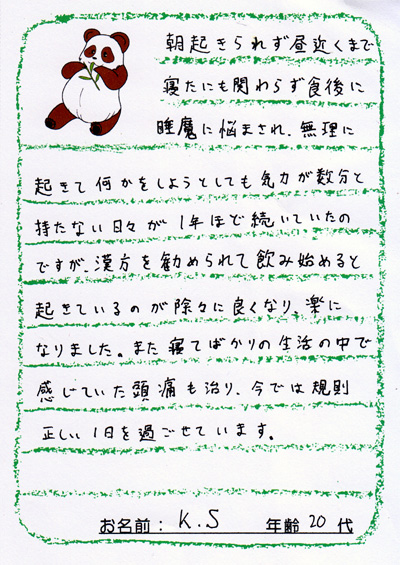 朝起きられず昼近くまで
寝たにも関わらず食後に
睡魔に悩まされ、無理に
起きて何かをしようとしても気力が数分と
持たない日々が1年ほど続いていたの
ですが、漢方を勧められて飲み始めると
起きているのが除々に良くなり、楽に
なりました。また寝てばかりの生活の中で
感じていた頭痛も治り、今では規則
正しい1日を過ごせています。
お名前: K.S 年齢 20 代